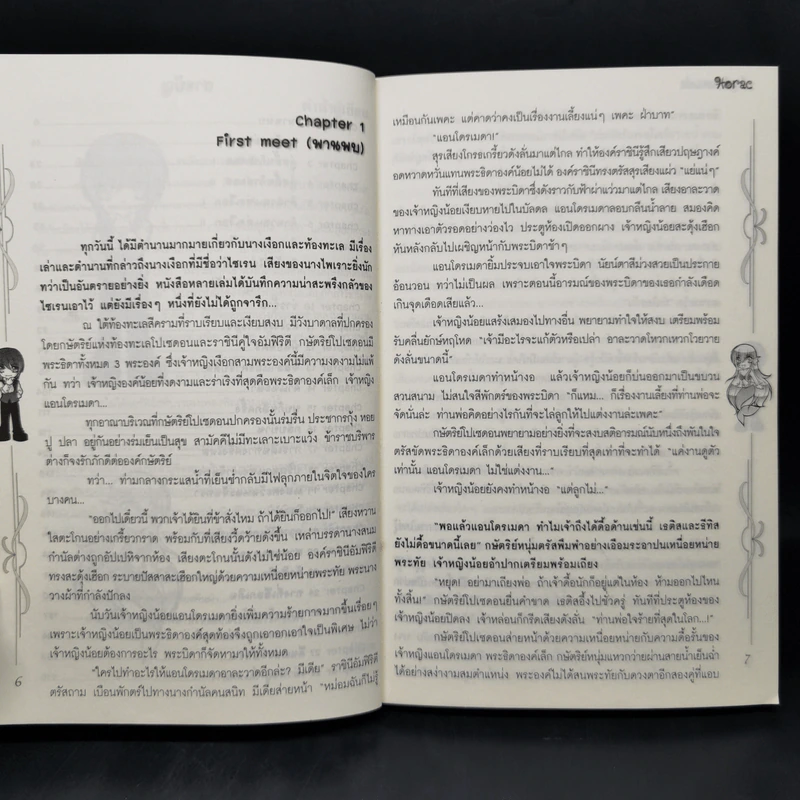 Chapter 1
First meet (พานพบ)
ทุกวันนี้ ได้มีตำนานมากมายเกี่ยวกับนางเงือกและท้องทะเล มีเรื่อง
เล่าและตำนานที่กล่าวถึงนางเงือกที่มีชื่อว่าไซเรน เสียงของนางไพเราะยิ่งนัก
ทว่าเป็นอันตรายอย่างยิ่ง หนังสือหลายเล่มได้บันทึกความน่าสะพรึงกลัวของ
ไซเรนเอาไว้ แต่ยังมีเรื่องๆ หนึ่งที่ยังไม่ได้ถูกจารึก...
ณ ใต้ท้องทะเลสีครามที่ราบเรียบและเงียบสงบ มีวังบาดาลที่ปกครอง
โดยกษัตริย์แห่งท้องทะเลโปเซดอนและราชินีคู่ใจอัมฟิริดี กษัตริย์โปเซดอนมี
พระธิดาทั้งหมด 3 พระองค์ ซึ่งเจ้าหญิงเงือกสามพระองค์นี้มีความงดงามไม่แพ้
กัน ทว่า เจ้าหญิงองค์น้อยที่งดงามและร่าเริงที่สุดคือพระธิดาองค์เล็ก เจ้าหญิง
แอนโดรเมดา...
ทุกอาณาบริเวณที่กษัตริย์โปเซดอนปกครองนั้นร่มรื่น ประชากรกุ้ง หอย
ปู ปลา อยู่กันอย่างร่มเย็นเป็นสุข สามัคคีไม่มีทะเลาะเบาะแว้ง ข้าราชบริพาร
ต่างก็จงรักภักดีต่อองค์กษัตริย์
ทว่า... ท่ามกลางกระแสน้ำที่เย็นช่ำกลับมีไฟลุกภายในจิตใจของใคร
บางคน...
"ออกไปเดี๋ยวนี้ พวกเจ้าได้ยินที่ข้าสั่งไหม ถ้าได้ยินก็ออกไป!" เสียงหวาน
ใสตะโกนอย่างเกรี้ยวกราด พร้อมกับที่เสียงวี้ดว้ายดังขึ้น เหล่าบรรดานางสนม
กำนัลต่างถูกอัปเปหิจากห้อง เสียงตะโกนนั้นดังไม่ใช่น้อย องค์ราชินีอัมฟิริดี
ทรงสะดุ้งเฮือก ระบายปัสสาสะเฮือกใหญ่ด้วยความเหนื่อยหน่ายพระทัย พระนาง
วางผ้าที่กำลังปักลง
นับวันเจ้าหญิงน้อยแอนโดรเมดายิ่งเพิ่มความร้ายกาจมากขึ้นเรื่อยๆ
เพราะเจ้าหญิงน้อยเป็นพระธิดาองค์สุดท้องจึงถูกเอาอกเอาใจเป็นพิเศษ ไม่ว่า
เจ้าหญิงน้อยต้องการอะไร พระบิดาก็จัดหามาให้ทั้งหมด
"ใครไปทำอะไรให้แอนโดรเมดาอาละวาดอีกล่ะ? มีเดีย" ราชินีอัมฟิริดี
ตรัสถาม เบือนพักตร์ไปทางนางกำนัลคนสนิท มีเดียส่ายหน้า "หม่อมฉันก็ไม่รู้
6
เหมือนกันเพคะ แต่คาดว่าคงเป็นเรื่องงานเลี้ยงแน่ๆ เพคะ ฝ่าบาท"
"แอนโดรเมดา!"
สุรเสียงโกรธเกรี้ยวดังลั่นมาแต่ไกล ทำให้องค์ราชินีรู้สึกเสียวปฤษฎางค์
อดหวาดหวั่นแทนพระธิดาองค์น้อยไม่ได้ องค์ราชินีทรงตรัสสุรเสียงแผ่ว "แย่แน่ๆ"
ทันทีที่เสียงของพระบิดาซึ่งดังราวกับฟ้าผ่าแว่วมาแต่ไกล เสียงอาละวาด
ของเจ้าหญิงน้อยเงียบหายไปในบัลดล แอนโดรเมดาลอบกลืนน้ำลาย สมองคิด
หาทางเอาตัวรอดอย่างว่องไว ประตูห้องเปิดออกผาง เจ้าหญิงน้อยสะดุ้งเฮือก
หันหลังกลับไปเผชิญหน้ากับพระบิดาช้าๆ
แอนโดรเมดายิ้มประจบเอาใจพระบิดา นัยน์ตาสีม่วงสวยเป็นประกาย
อ้อนวอน ทว่าไม่เป็นผล เพราะตอนนี้อารมณ์ของพระบิดาของเธอกำลังเดือด
เกินจุดเดือดเสียแล้ว...
เจ้าหญิงน้อยแสร้งเสมองไปทางอื่น พยายามทำใจให้สงบ เตรียมพร้อม
รับคลื่นยักษ์หฤโหด "เจ้ามีอะไรจะแก้ตัวหรือเปล่า อาละวาดโหวกเหวกโวยวาย
ดังลั่นขนาดนี้"
แอนโดรเมดาทำหน้างอ แล้วเจ้าหญิงน้อยก็บ่นออกมาเป็นขบวน
สวนสนาม ไม่สนใจสีพักตร์ของพระบิดา "ก็แหม... ก็เรื่องงานเลี้ยงที่ท่านพ่อจะ
จัดนั่นล่ะ ท่านพ่อคิดอย่างไรกันที่จะไล่ลูกให้ไปแต่งงานล่ะเพคะ"
กษัตริย์โปเซดอนพยายามอย่างยิ่งที่จะสงบสติอารมณ์นับหนึ่งถึงพันในใจ
ตรัสขัดพระธิดาองค์เล็กด้วยเสียงที่ราบเรียบที่สุดเท่าที่จะทำได้ "แค่งานดูตัว
เท่านั้น แอนโดรเมดา ไม่ใช่แต่งงาน..."
เจ้าหญิงน้อยยังคงทำหน้างอ "แต่ลูกไม่..."
"พอแล้วแอนโดรเมดา ทำไมเจ้าถึงได้ดื้อด้านเช่นนี้ เธติสและธีทิส
ยังไม่ดื้อขนาดนี้เลย" กษัตริย์หนุ่มตรัสพึมพำอย่างเอือมระอาปนเหนื่อยหน่าย
พระทัย เจ้าหญิงน้อยอ้าปากเตรียมพร้อมเถียง
"หยุด! อย่ามาเถียงพ่อ ถ้าเจ้าดื้อนักก็อยู่แต่ในห้อง ห้ามออกไปไหน
ทั้งสิ้น!" กษัตริย์โปเซดอนยื่นคำขาด เธติสอึ้งไปชั่วครู่ ทันทีที่ประตูห้องของ
เจ้าหญิงน้อยปิดลง เจ้าหล่อนก็กรีดเสียงดังลั่น "ท่านพ่อใจร้ายที่สุดในโลก...!"
กษัตริย์โปเซดอนส่ายหน้าด้วยความเหนื่อยหน่ายกับความดื้อรั้นของ
เจ้าหญิงแอนโดรเมดา พระธิดาองค์เล็ก กษัตริย์หนุ่มแหวกว่ายผ่านสายน้ำเย็นฉ่ำ
ได้อย่างสง่างามสมตำแหน่ง พระองค์ไม่ได้สนพระทัยกับดวงตาอีกสองคู่ที่แอบ
7